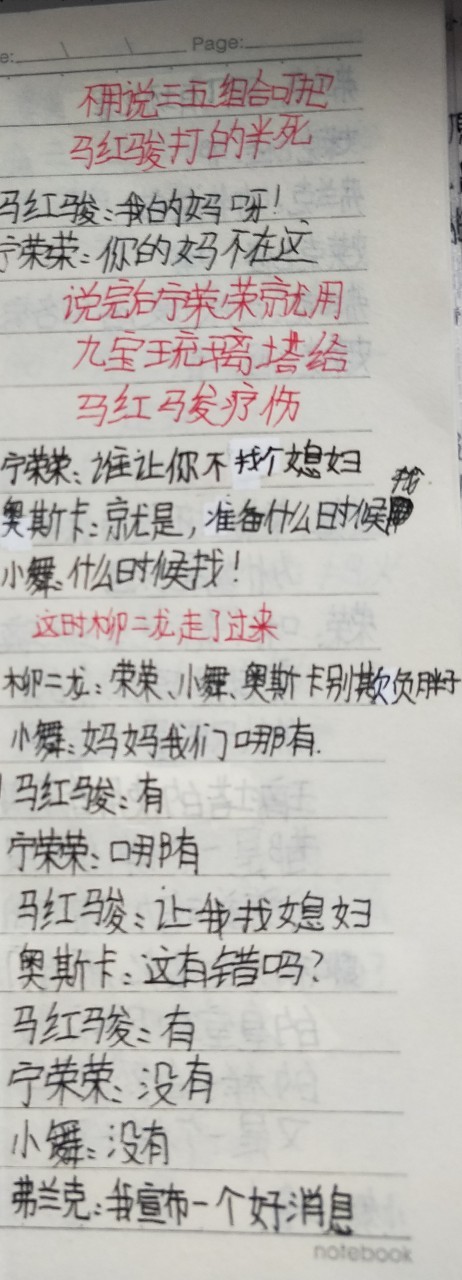 e: \ \ Page:
不用说三五组合叮把
马红骏打的半死
马红骏:我的妈呀!
宁荣荣:你的妈不在这
说完宁荣荣就用
九宝琉璃塔给
马红骏疗伤
宁荣荣:谁让你不找个媳妇
奥斯卡:就是,准备什么时候找
小舞:什么时候找!
这时柳二龙走了过来
柳二龙:荣荣、小舞、奥斯卡别欺负胖子
小舞:妈妈我们哪有.
马红骏:有
宁荣荣:哪有
马红骏:让我找媳妇
奥斯卡:这有错吗?
马红骏:有
宁荣荣:没有
小舞:没有
弗兰克:我宣布一个好消息
notebook